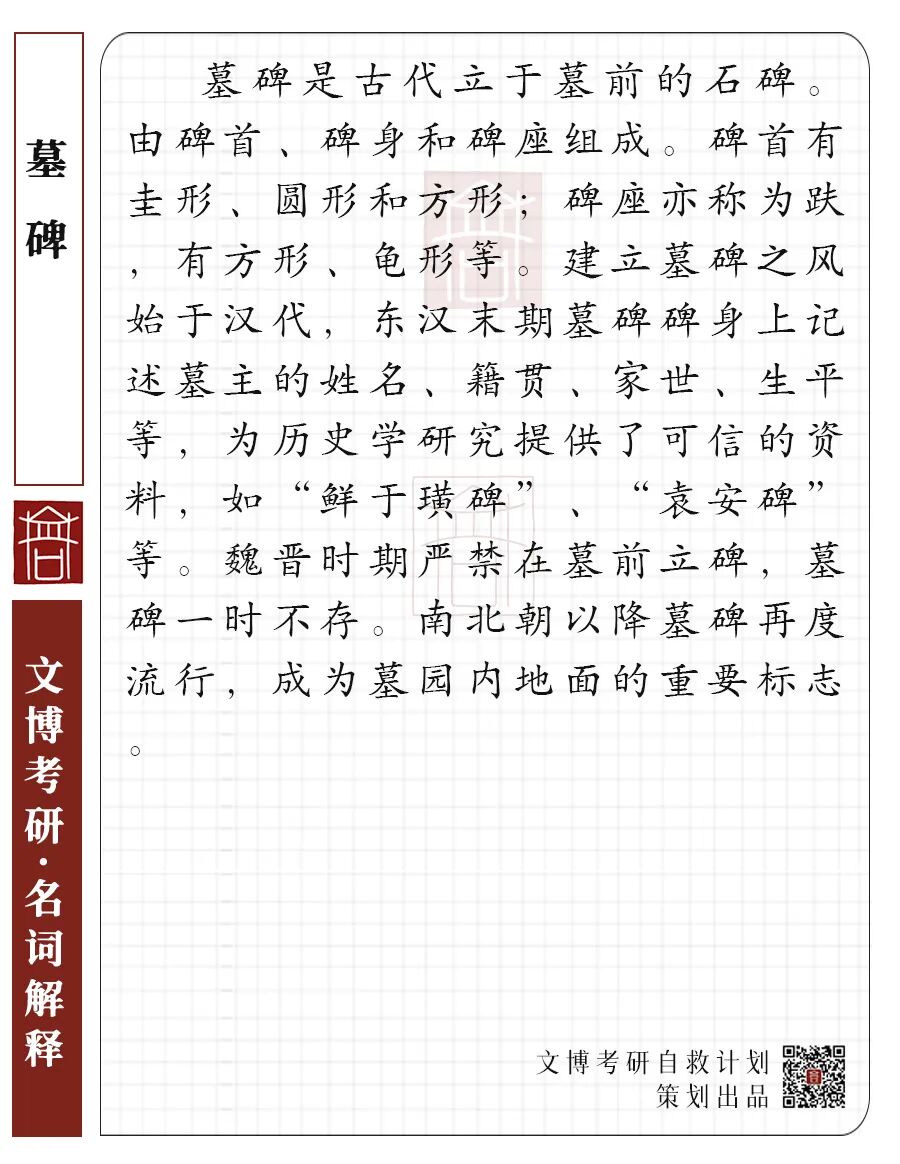 墓碑
文博考研·名词解释
墓碑是古代立于墓前的石碑。
由碑首、碑身和碑座组成。碑首有
圭形、圆形和方形；碑座亦称为趺
，有方形、龟形等。建立墓碑之风
始于汉代，东汉末期墓碑碑身上记
述墓主的姓名、籍贯、家世、生平
等，为历史学研究提供了可信的资
料，如“鲜于璜碑”、“袁安碑”
等。魏晋时期严禁在墓前立碑，墓
碑一时不存。南北朝以降墓碑再度
流行，成为墓园内地面的重要标志
。
文博考研自救计划
策划出品